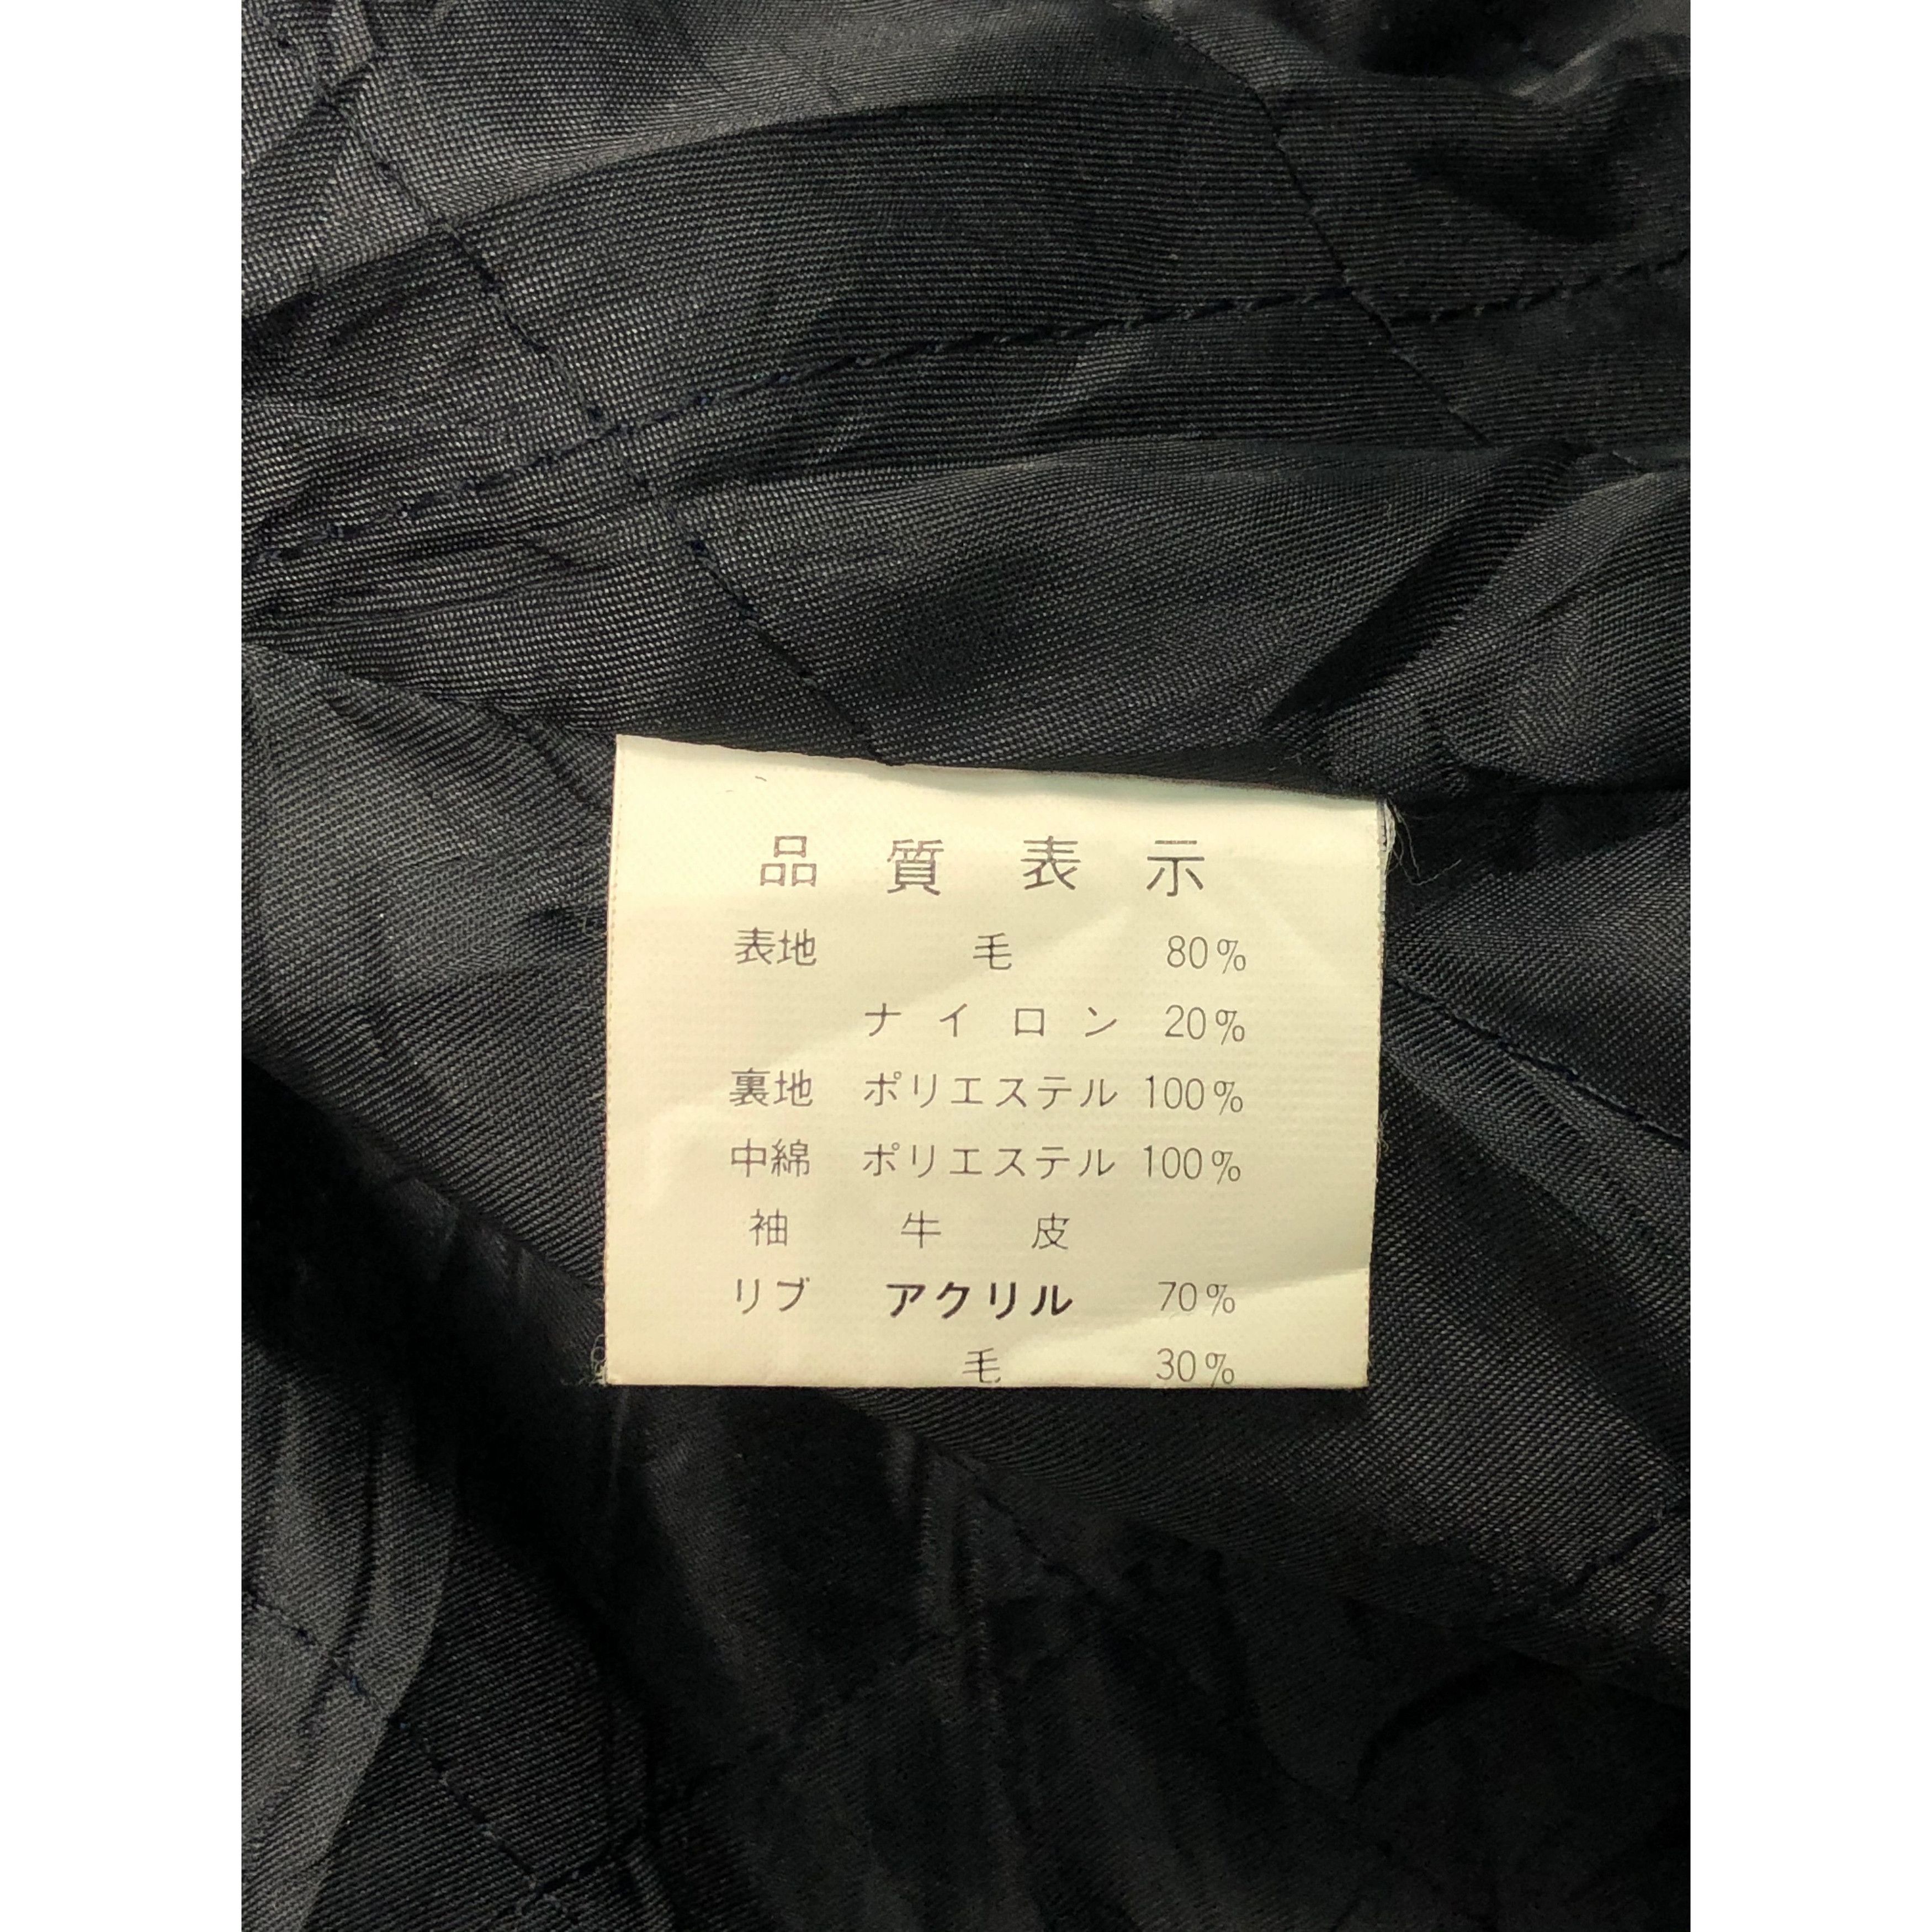 品質表示
表地 毛 80%
ナイロン 20%
裏地 ポリエステル 100%
中綿 ポリエステル 100%
袖 牛皮
リブ アクリル 70%
毛 30%